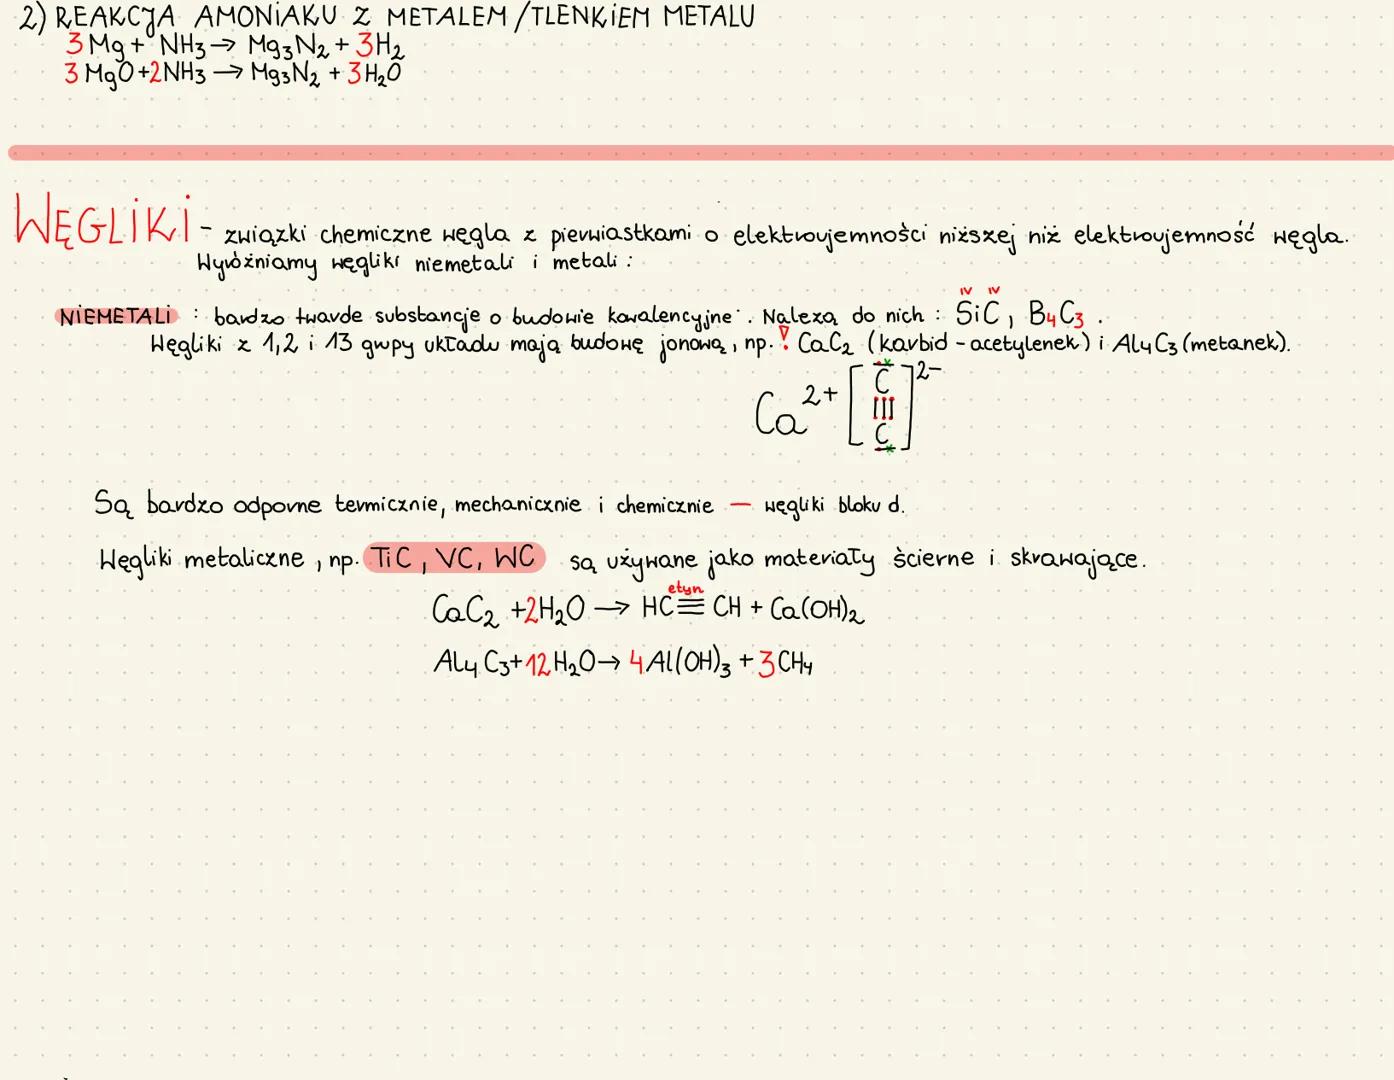 2) REAKCJA AMONIAKU Z METALEM/TLENKIEM METALU
3Mg + NH3 → Mg3N2 + 3H2
3MgO + 2NH3 → Mg3N2 + 3H2O
WĘGLIKI - związki chemiczne węgla z pierwiastkami o elektroujemności niższej niż elektroujemność węgla.
Wyróżniamy węgliki niemetali i metali :
NIEMETALI : bardzo twarde substancje o budowie kowalencyjne. Nalezą do nich : SiC, B4C3.
IV IV
Węgliki z 1,2 i 13 grupy układu mają budowę jonową, np. ! CaC2 (karbid - acetylenek) i Al4C3 (metanek).
Ca2+ [C≡C]2-
Są bardzo odporne termicznie, mechanicznie i chemicznie — węgliki bloku d.
Węgliki metaliczne, np. TiC, VC, WC są używane jako materiały ścierne i skrawające.
etyn
CaC2 + 2H2O → HC≡CH + Ca(OH)2
Al4C3 + 12H2O → 4Al(OH)3 + 3CH4